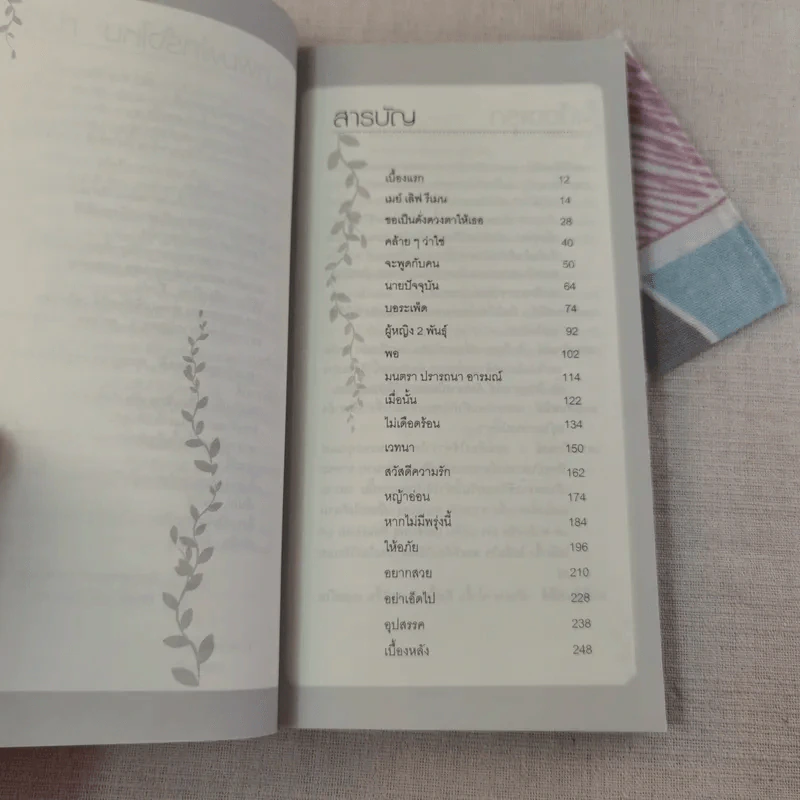 สารบัญ
เบื้องแรก 12
เมย์ เลิฟ รีเมน 14
ขอเป็นดั่งดวงตาให้เธอ 28
คล้าย ๆ ว่าใช่ 40
จะพูดกับคน 50
นายปัจจุบัน 64
บอระเพ็ด 74
ผู้หญิง 2 พันธุ์ 92
พอ 102
มนตรา ปรารถนา อารมณ์ 114
เมื่อนั้น 122
ไม่เดือดร้อน 134
เวทนา 150
สวัสดีความรัก 162
หญ้าอ่อน 174
หากไม่มีพรุ่งนี้ 184
ให้อภัย 196
อยากสวย 210
อย่าเอ็ดไป 228
อุปสรรค 238
เบื้องหลัง 248